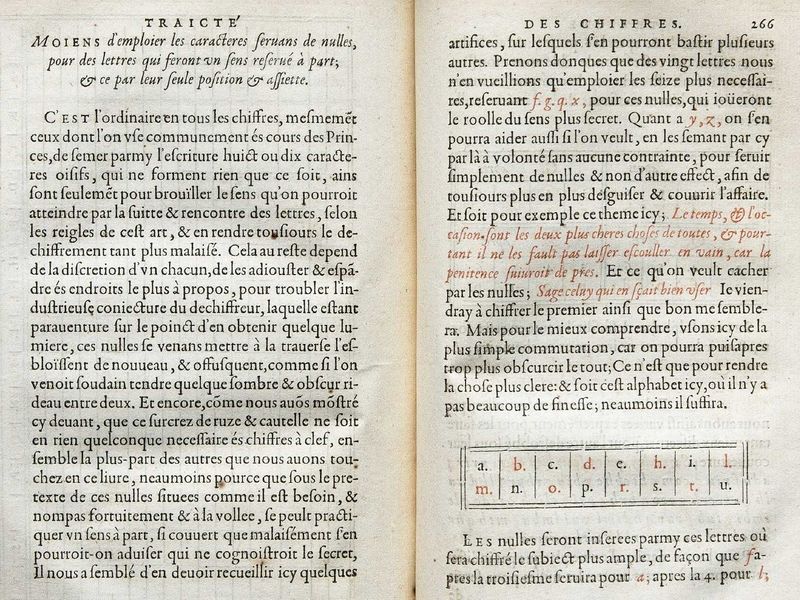 TRAICTÉ
MOIENS d'emploier les caracteres seruans de nulles,
pour des lettres qui feront vn sens reserué à part;
& ce par leur seule position & assiette.
C'EST l'ordinaire en tous les chiffres, mesmemẽt
ceux dont l'on vse communement és cours des Prin-
ces, de semer parmy l'escriture huict ou dix caracte-
res oisifs, qui ne forment rien que ce soit, ains
sont seulemẽt pour brouïller le sens qu'on pourroit
atteindre par la suitte & rencontre des lettres, selon
les reigles de cest art, & en rendre tousiours le de-
chiffrement tant plus malaisé. Cela au reste depend
de la discretion d'vn chacun, de les adiouster & espã-
dre és endroits le plus à propos, pour troubler l'in-
dustrieuse coniecture du dechiffreur, laquelle estant
parauenture sur le poinct d'en obtenir quelque lu-
miere, ces nulles se venans mettre à la trauerse l'es-
bloïssent de nouueau, & offusquent, comme si l'on
venoit soudain tendre quelque sombre & obscur ri-
deau entre deux. Et encore, cõme nous auõs mõstré
cy deuant, que ce surcrez de ruze & cautelle ne soit
en rien quelconque necessaire és chiffres à clef, en-
semble la plus-part des autres que nous auons tou-
chez en ce liure, neaumoins pource que sous le pre-
texte de ces nulles situees comme il est besoin, &
nompas fortuitement & à la vollee, se peult practi-
quer vn sens à part, si couuert que malaisément s'en
pourroit-on aduiser qui ne cognoistroit le secret,
Il nous a semblé d'en deuoir recueillir icy quelques
DES CHIFFRES. 266
artifices, sur lesquels s'en pourront bastir plusieurs
autres. Prenons donques que des vingt lettres nous
n'en vueillions qu'emploier les seize plus necessai-
res, reseruant f. g. q. x, pour ces nulles, qui ioüeront
le roolle du sens plus secret. Quant a y, z, on s'en
pourra aider aussi si l'on veult, en les semant par cy
par là à volonté sans aucune contrainte, pour seruir
simplement de nulles & non d'autre effect, afin de
tousiours plus en plus désguiser & couurir l'affaire.
Et soit pour exemple ce theme icy; Le temps, & l'oc-
casion sont les deux plus cheres choses de toutes, & pour-
tant il ne les fault pas laisser escouller en vain, car la
penitence suiuroit de pres. Et ce qu'on veult cacher
par les nulles; Sage celuy qui en sçait bien vser Ie vien-
dray à chiffrer le premier ainsi que bon me semble-
ra. Mais pour le mieux comprendre, vsons icy de la
plus simple commutation, car on pourra puisapres
trop plus obscurcir le tout; Ce n'est que pour rendre
la chose plus clere: & soit cest alphabet icy, où il n'y a
pas beaucoup de finesse; neaumoins il suffira.
a. b. c. d. e. h. i. l.
m. n. o. p. r. s. t. u.
LES nulles seront inserees parmy ces lettres où
sera chiffré le subiect plus ample, de façon que f a-
pres la troisiesme seruira pour a; apres la 4. pour l;